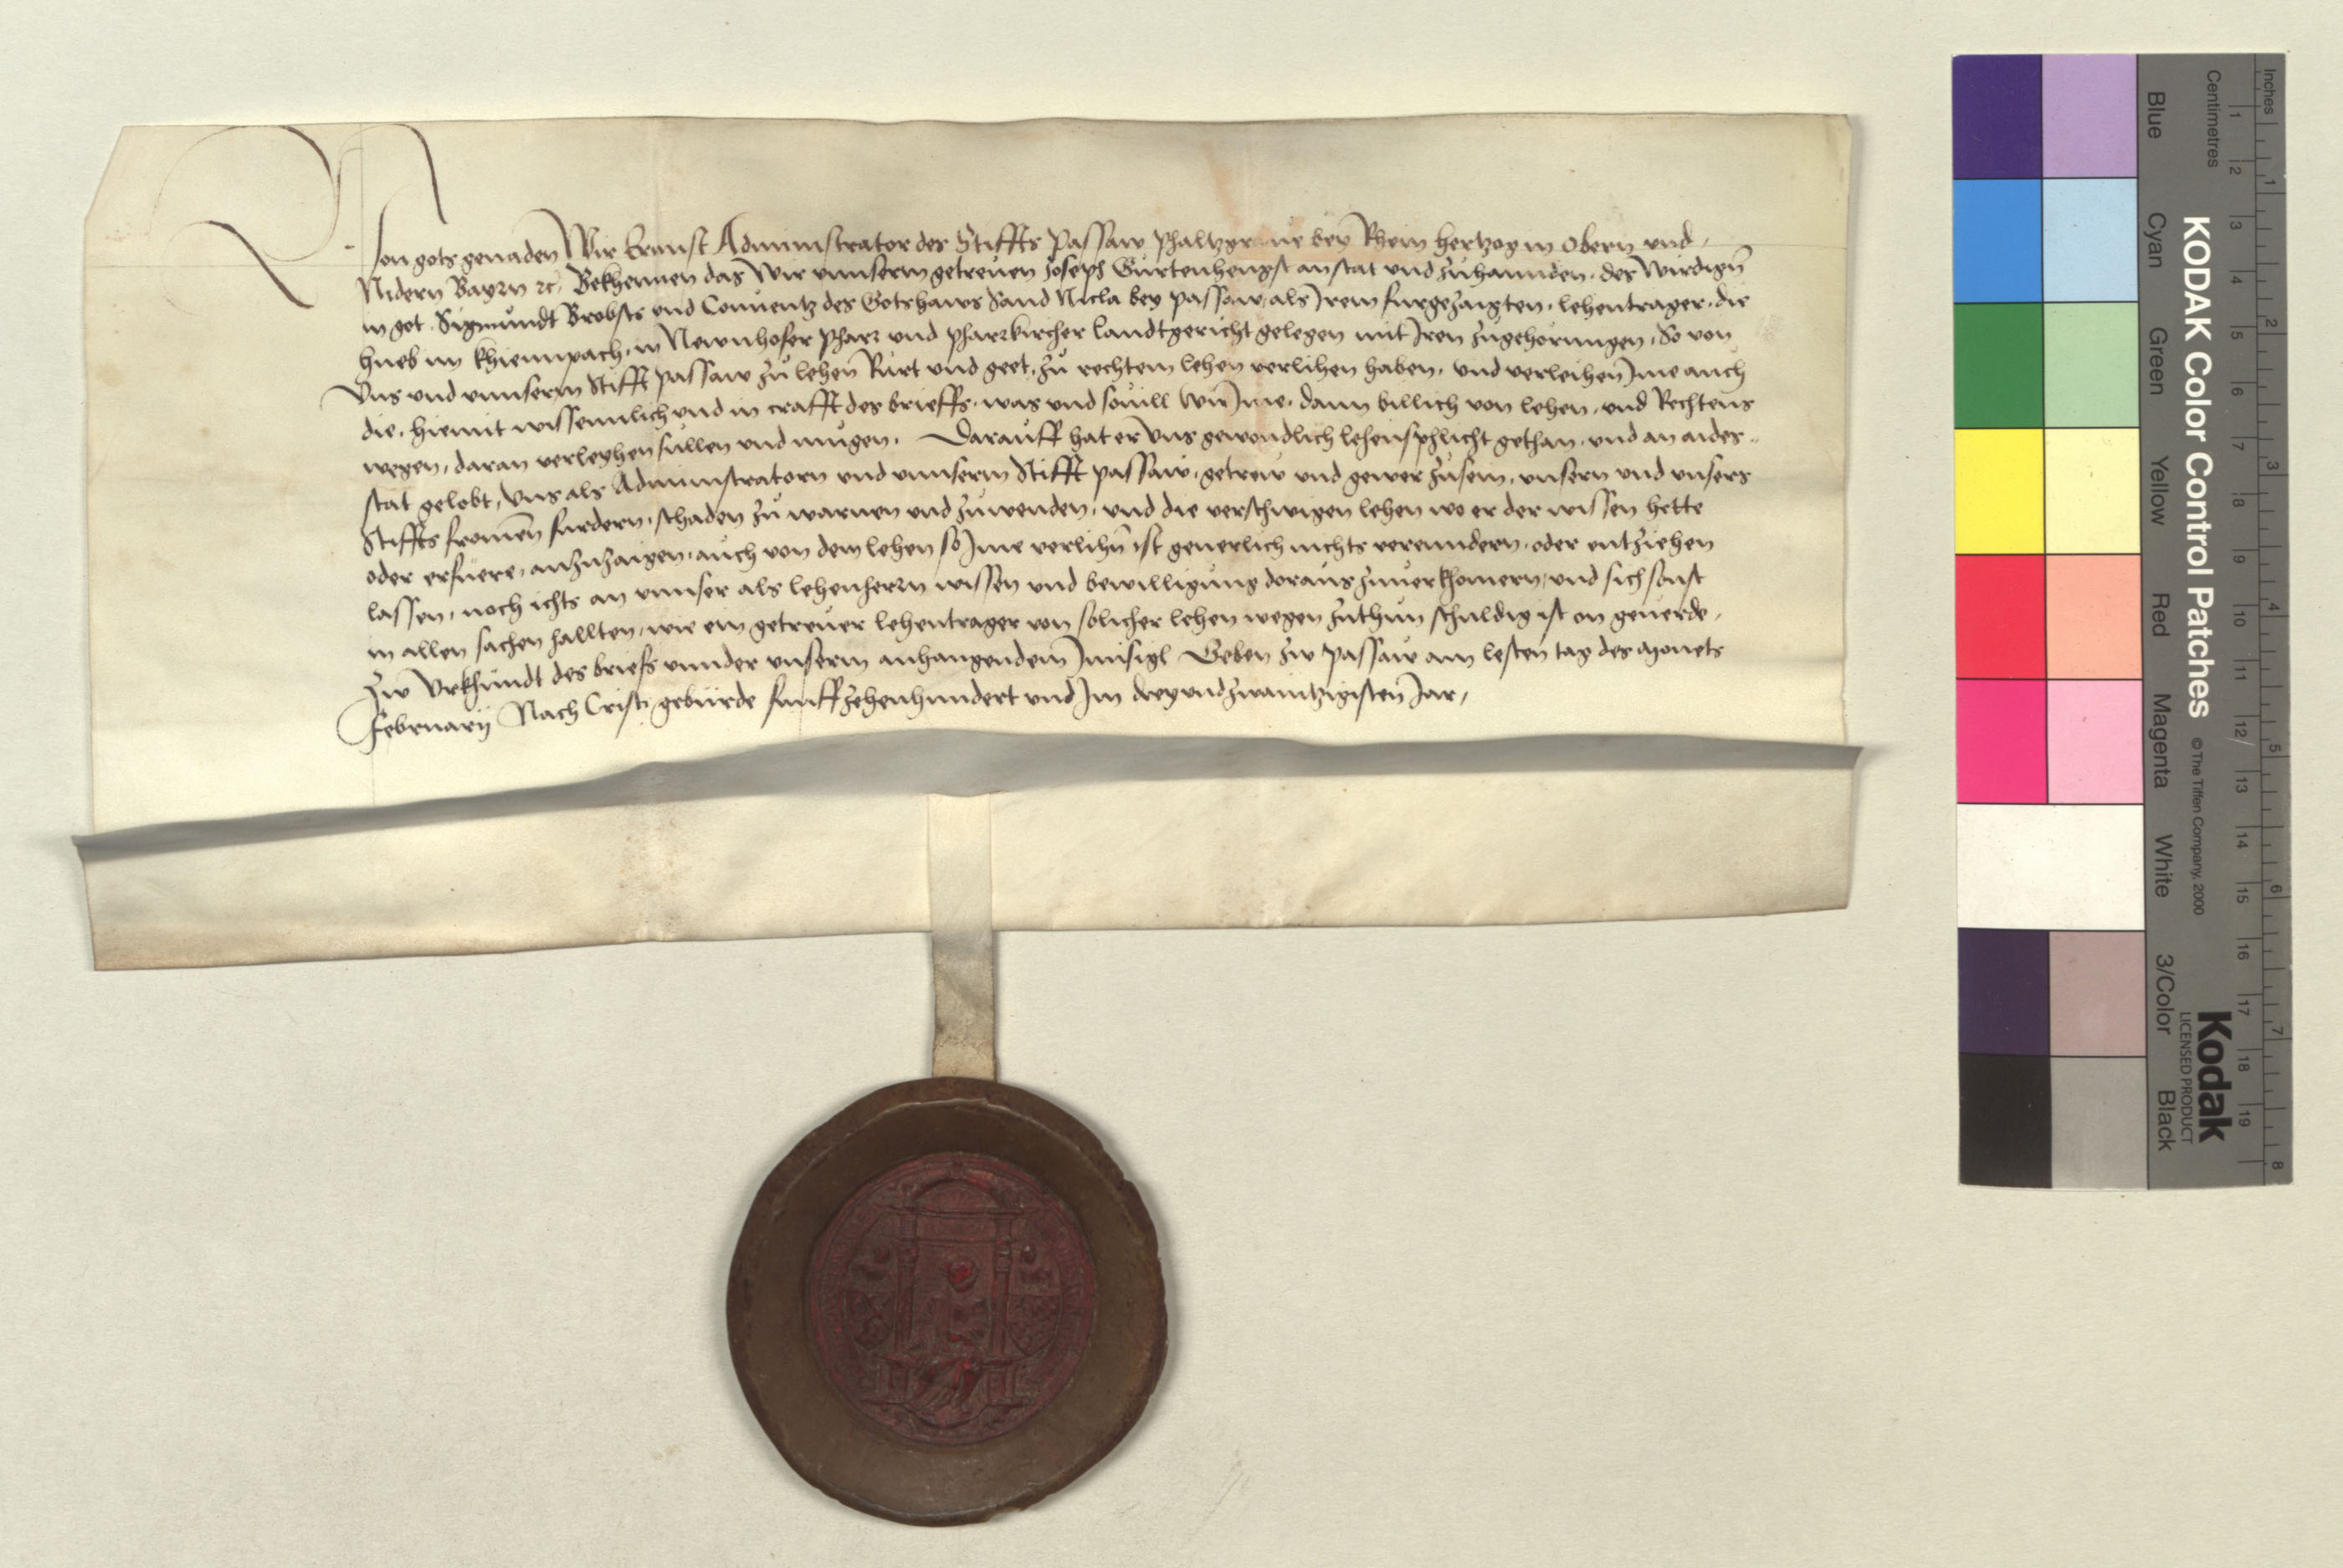 Von gots genaden Wir Ernnst Administrator des Stiffts Passaw Phaltzgraue bey Rhein hertzog in Obern und
Nidern Bayrn rc. Bekhennen das Wir unnserm getreuen Joseph Gurtenhengst anstat und zuhannden des Wirdigen
in got Sigmundt Brobsts und Conuentz des Gotshaws Sand Nicla bey Passaw als Irem furgezaigten lehentrager die
hueb im khiennpach in Newnhofer Pharr und Pharrkircher Landtgericht gelegen mit Iren zugehorungen So von
Uns und unnserm Stifft Passaw zu lehen Rürt und geet zu rechtem lehen verlihen haben und verleihen Ime auch
die hiemit wissenntlich und in crafft des brieffs was und souill Wir Ime dann billich von lehen und Rechtens
wegen daran verleyhen sullen und mugen Darauff hat er Uns gewondlich lehenspflicht gethan und an aides
stat gelobt Uns als Administratorn und unnserm Stifft Passaw getrew und gewer zusein unsern und unsers
Stiffts fromen furdern schaden zu warnen und zuwenden und die verschwigen lehen wo er der wissen hette
oder erfuere anzuzaigen auch von dem lehen so Ime verlihn ist geuerlich nichts verenndern oder entziehen
lassen noch ichts an unnser als lehenherrn wissen und bewilligung doraus zuuerkhomern und sich sonst
in allen sachen hallten wie ein getreuer lehentrager von solicher lehen wegen zuthun schuldig ist on geuerde
Zw Urkhundt des briefs unnder unserm anhangendem Innsigl Geben zw Passaw am lesten tag des Monets
Februarij Nach Cristi geburde funffzehenhundert und Im drey und zwaintzigisten Jar
KODAK Color Control Patches © The Tiffen Company, 2000
Kodak
LICENSED PRODUCT
Inches 1 2 3 4 5 6 7 8
Centimetres 1 2 3 4 5 6 7 8 9 10 11 12 13 14 15 16 17 18 19
Blue Cyan Green Yellow Red Magenta White 3/Color Black